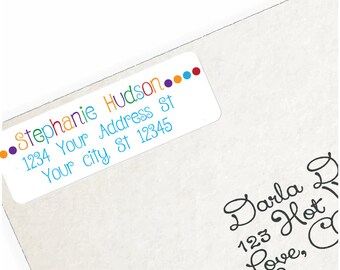 Stephanie Hudson
1234 Your Address St
Your city St 12345
Darla
123 Hot
Love,